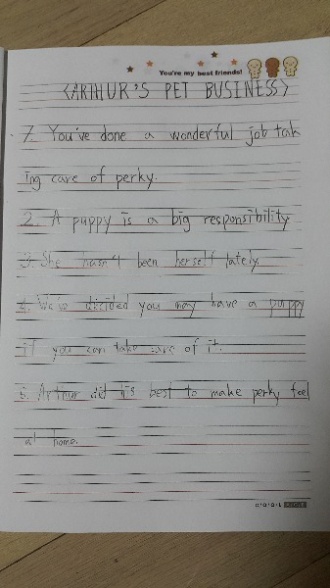 You're my best friends!
<ARTHUR'S PET BUSINESS>
1. You've done a wonderful job tak
ing care of perky.
2. A puppy is a big responsibility
3. She hasn't been herself lately
4. We've decided you may have a puppy
if you can take care of it.
5. Arthur did his best to make perky feel
at home.